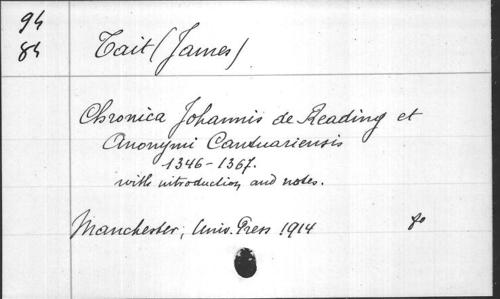 94
84
Tait (James)
Chronica Johannis de Reading et
Anonymi Cantuariensis
1346-1367.
with introduction and notes.
Manchester, Univ. Press 1914 8o